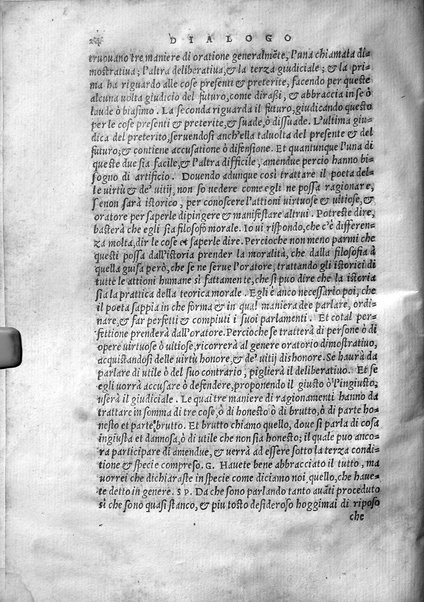 DIALOGO
truouano tre maniere di oratione generalmẽte, l'una chiamata di=
mostratiua; l'altra deliberatiua, & la terza giudiciale; & la pri=
ma ha riguardo alle cose presenti & preterite, facendo per queste
alcuna uolta giudicio del futuro, come dirassi, & abbraccia in se ò
laude ò biasimo. La seconda riguarda il futuro, giudicando questo
per le cose presenti & preterite, & suade, ò dissuade. L'ultima giu=
dica del preterito, seruendosi anch'ella taluolta del presente & del
futuro; & contiene accusatione ò difensione. Et quantunque l'una di
queste due sia facile, & l'altra difficile, amendue percio hanno bi=
sogno di artificio. Douendo adunque cosi trattare il poeta del=
le uirtù & de' uitij, non so uedere come egli ne possa ragionare,
se non sarà istorico, per conoscere l'attioni uirtuose & uitiose, &
oratore per saperle dipingere & manifestare altrui. Potreste dire,
basterà che egli sia filosofo morale. Io ui rispondo, che c'è differen=
za molta, dir le cose et saperle dire. Percioche non meno parmi che
questi possa dall'istoria prender la moralità, che dalla filosofia à
quella guisa però, che se ne serue l'oratore, trattando gli istorici di
tutte le attioni humane sì fattamente, che si puo dire che la istoria
sia la pratica della teorica morale. Egli è anco necessario poi, che
il poeta sappia in che forma & in qual maniera dee parlare, ordi=
nare, & far perfetti & compiuti i suoi parlamenti. Et cotal per=
fettione prenderà dall'oratore. Percioche se tratterà di persone ò di
opere uirtuose ò uitiose, ricorrerà al genere oratorio dimostratiuo,
acquistandosi delle uirtù honore, & de' uitij dishonore. Se haurà da
parlare di utile ò del suo contrario, piglierà il deliberatiuo. Et se
egli uorrà accusare ò defendere, proponendo il giusto ò l'ingiusto,
userà il giudiciale. Le quai tre maniere di ragionamenti hanno da
trattare in somma di tre cose, ò di honesto ò di brutto, ò di parte ho=
nesto et parte brutto. Et brutto chiamo quello, doue si parla di cosa
ingiusta et dannosa, ò di utile che non sia honesto; il quale puo anco=
ra participare di amendue, & uerrà ad essere sotto la terza condi
tione & specie compreso. G. Hauete bene abbracciato il tutto, ma
uorrei che dichiaraste in specie come diciamo noi quello, che haue=
te detto in genere. SP. Da che sono parlando tanto auãti proceduto
sì che sono quasi stanco, & piu tosto desideroso hoggimai di riposo
che